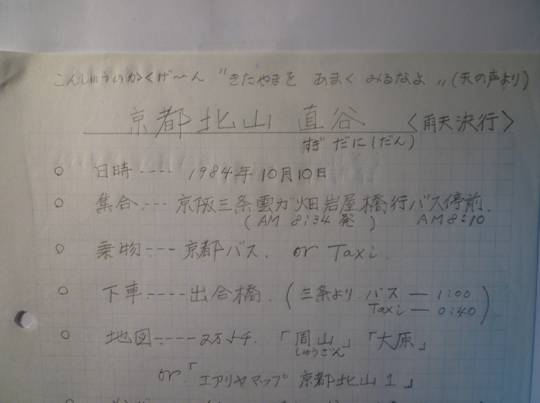 こんしゅうのかくげ〜ん "きたやまを あまく みるなよ„ (天の声より)
京都北山 直谷 〈雨天決行〉
すぎ だに(だん)
○ 日時---- 1984年10月10日
○ 集合---- 京阪三条雲ヶ畑岩屋橋行バス停前.
(AM 8:34 発) AM 8:10
○ 乗物---- 京都バス. or Taxi.
○ 下車---- 出合橋. (三条より バス — 1:00
Taxi — 0:40)
○ 地図---- 2万5千. 「周山」「大原」
しゅうざん
or 「エアリヤマップ 京都北山1」